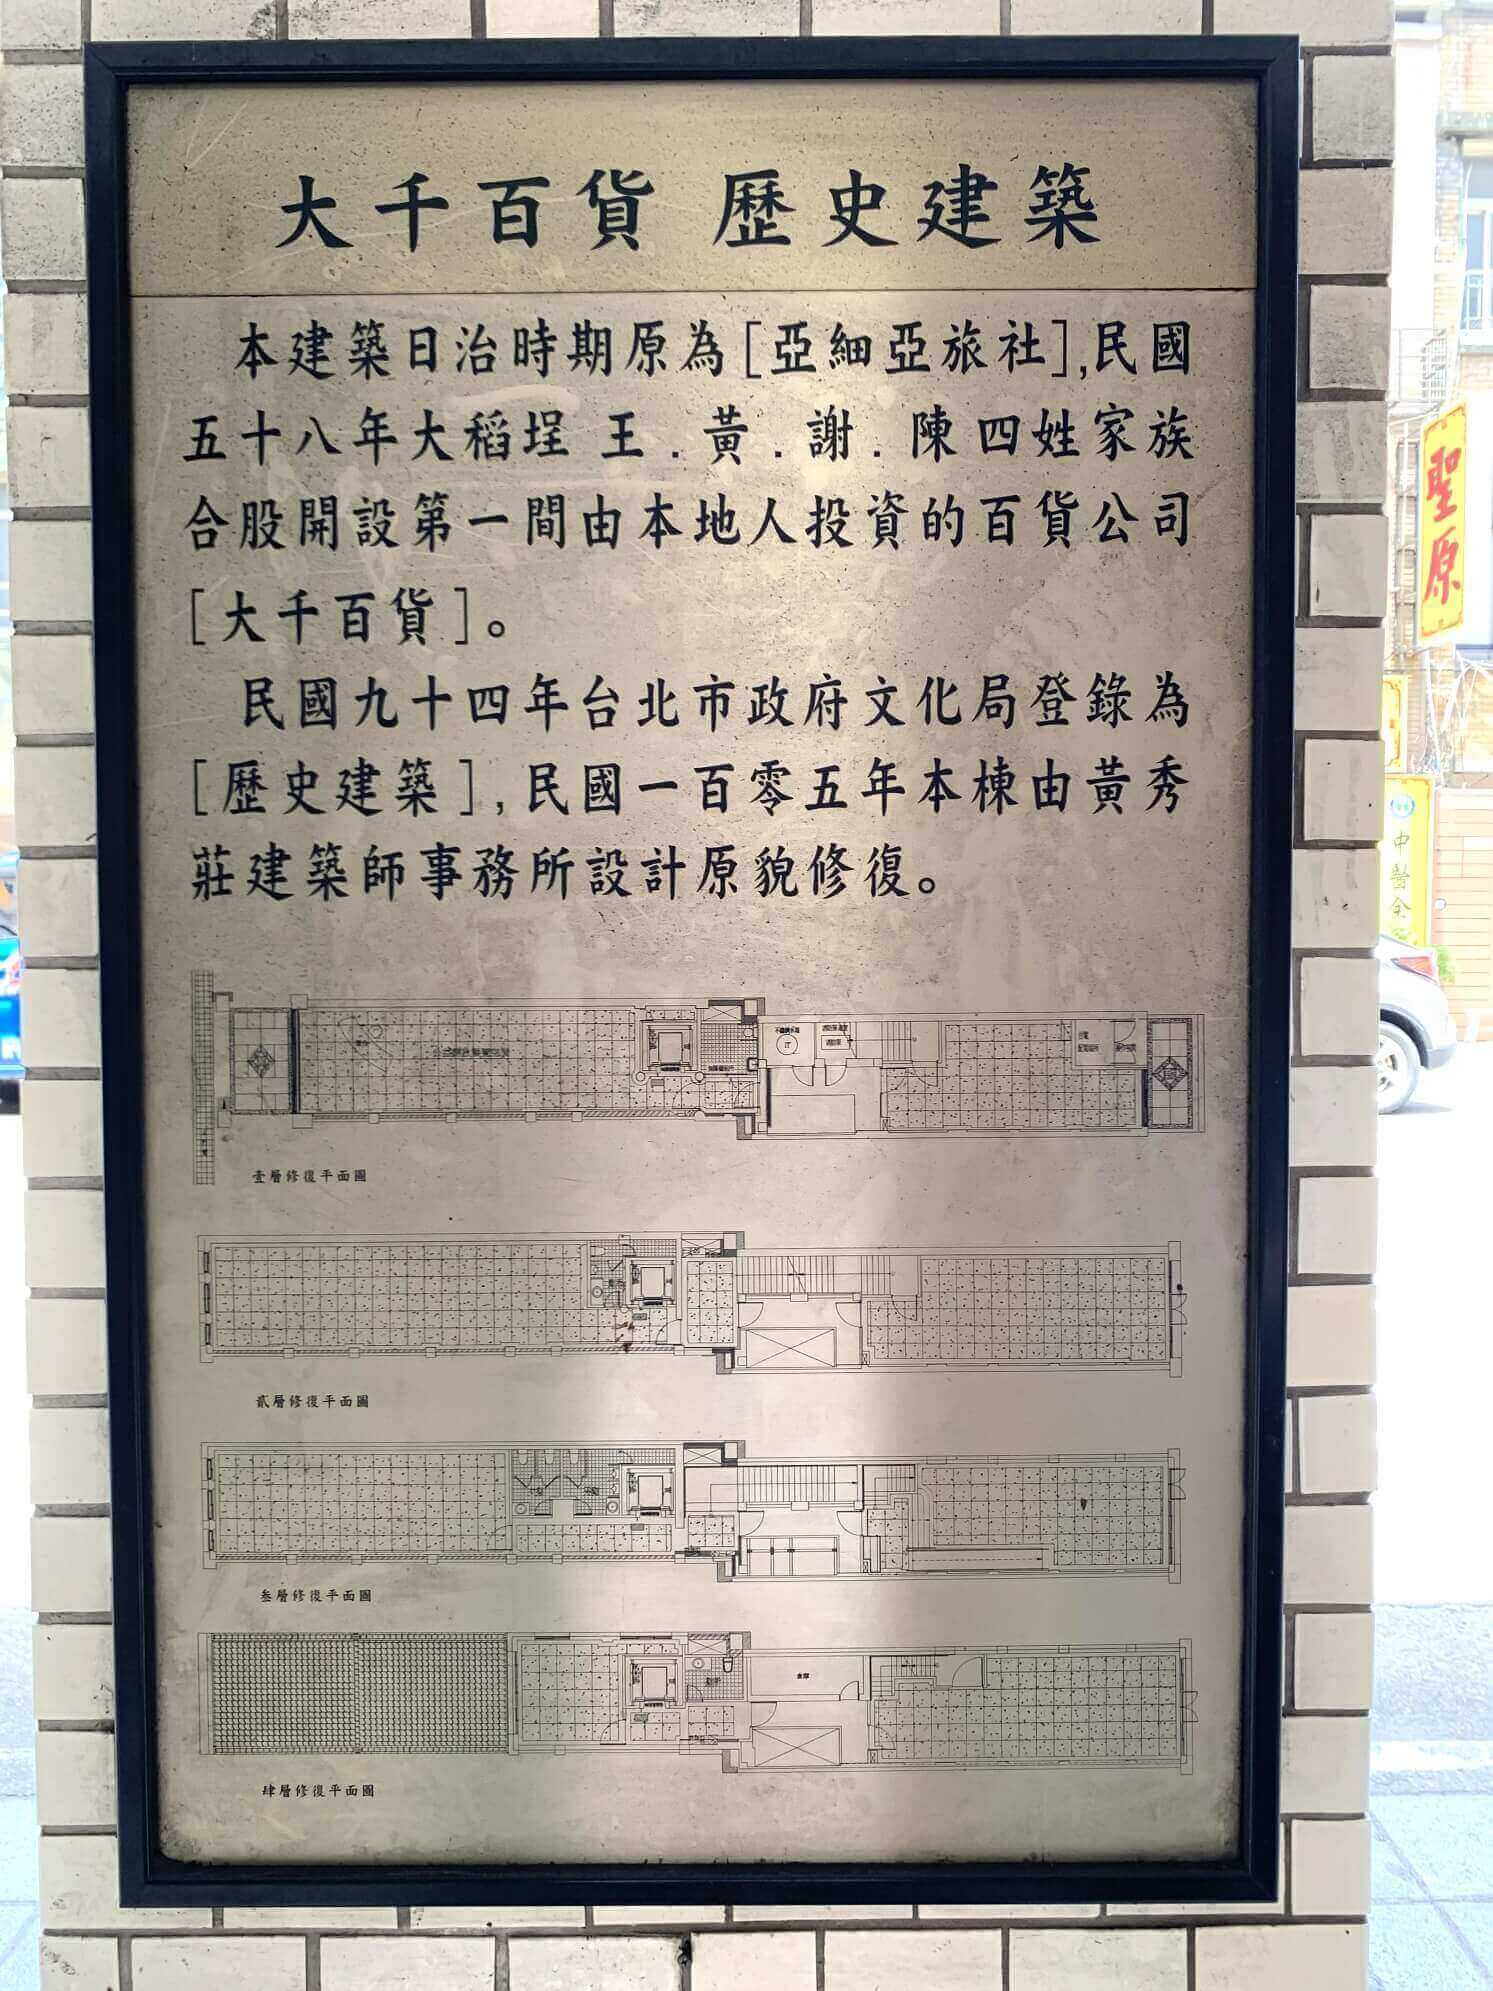 大千百貨 歷史建築
本建築日治時期原為[亞細亞旅社],民國
五十八年大稻埕 王.黃.謝.陳四姓家族
合股開設第一間由本地人投資的百貨公司
[大千百貨]。
民國九十四年台北市政府文化局登錄為
[歷史建築],民國一百零五年本棟由黃秀
莊建築師事務所設計原貌修復。
壹層修復平面圖
貳層修復平面圖
叁層修復平面圖
倉庫
肆層修復平面圖
聖原
中醫